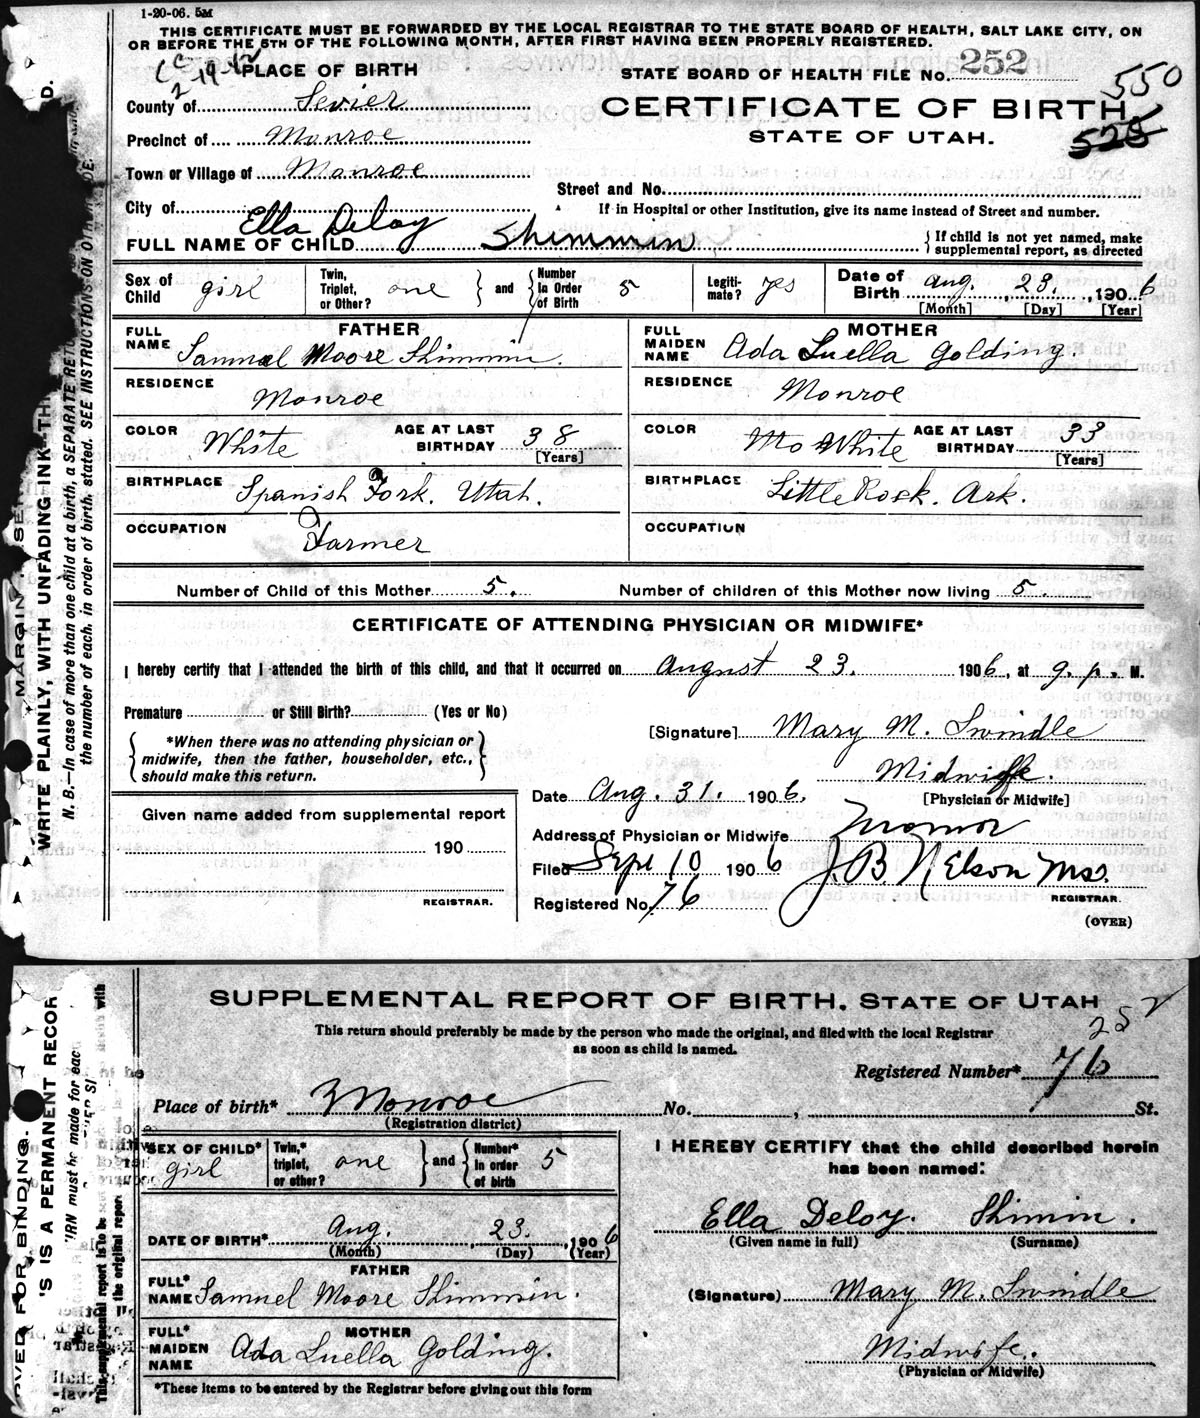 1-20-06. 5M
THIS CERTIFICATE MUST BE FORWARDED BY THE LOCAL REGISTRAR TO THE STATE BOARD OF HEALTH, SALT LAKE CITY, ON
OR BEFORE THE 5TH OF THE FOLLOWING MONTH, AFTER FIRST HAVING BEEN PROPERLY REGISTERED.
PLACE OF BIRTH
STATE BOARD OF HEALTH FILE No. 252
550
County of Sevier
CERTIFICATE OF BIRTH
Precinct of Monroe
STATE OF UTAH.
525
Town or Village of Monroe
Street and No.
City of
If in Hospital or other Institution, give its name instead of Street and number.
FULL NAME OF CHILD Ella Deloy Shimmin
{ If child is not yet named, make
supplemental report, as directed
Sex of Child girl
Twin, Triplet, or Other? one } and { Number In Order of Birth 5
Legiti-mate? yes
Date of Birth Aug. 23., 1906
[Month] [Day] [Year]
FATHER
FULL NAME Samuel Moore Shimmin.
MOTHER
FULL MAIDEN NAME Ada Luella Golding.
RESIDENCE Monroe
RESIDENCE Monroe
COLOR White AGE AT LAST BIRTHDAY 38 [Years]
COLOR Mo White AGE AT LAST BIRTHDAY 33 [Years]
BIRTHPLACE Spanish Fork. Utah.
BIRTHPLACE Little Rock. Ark.
OCCUPATION Farmer
OCCUPATION
Number of Child of this Mother 5. Number of children of this Mother now living 5.
CERTIFICATE OF ATTENDING PHYSICIAN OR MIDWIFE*
I hereby certify that I attended the birth of this child, and that it occurred on August 23. 1906, at 9. p. M.
Premature or Still Birth? (Yes or No)
{ *When there was no attending physician or
midwife, then the father, householder, etc.,
should make this return. }
[Signature] Mary M. Swindle
Midwife.
[Physician or Midwife]
Date Aug. 31. 1906.
Given name added from supplemental report
190
REGISTRAR.
Address of Physician or Midwife
Filed Sept 10 1906 J. B. Nelson
REGISTRAR.
Registered No. 76
(OVER)
WRITE PLAINLY, WITH UNFADING INK—TH
N. B.—In case of more than one child at a birth, a SEPARATE RET
the number of each, in order of birth, stated. SEE INSTRUCTIONS ON
SUPPLEMENTAL REPORT OF BIRTH. STATE OF UTAH
This return should preferably be made by the person who made the original, and filed with the local Registrar
as soon as child is named.
252
Registered Number* 76
Place of birth* Monroe No. , St.
(Registration district)
SEX OF CHILD* girl
Twin,* triplet, or other? one } and { Number* In order of birth 5
I HEREBY CERTIFY that the child described herein
has been named:
DATE OF BIRTH* Aug. , 23. , 1906
(Month) (Day) (Year)
Ella Deloy. Shimin.
(Given name in full) (Surname)
FATHER
FULL* NAME Samuel Moore Shimmin.
(Signature) Mary M. Swindle
MOTHER
FULL* MAIDEN NAME Ada Luella Golding.
Midwife.
(Physician or Midwife)
*These items to be entered by the Registrar before giving out this form
VED FOR BINDING.
'S IS A PERMANENT RECOR
URN must be made for eac
This supplemental report is to be
the original report